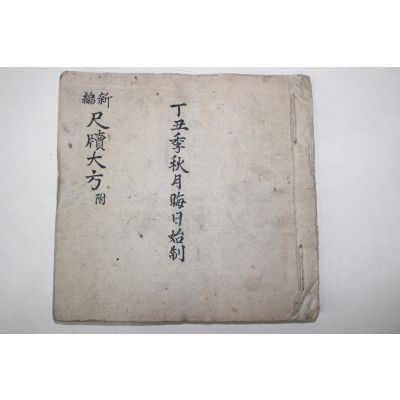 丁丑季秋月晦日始制
新編
尺牘大方附